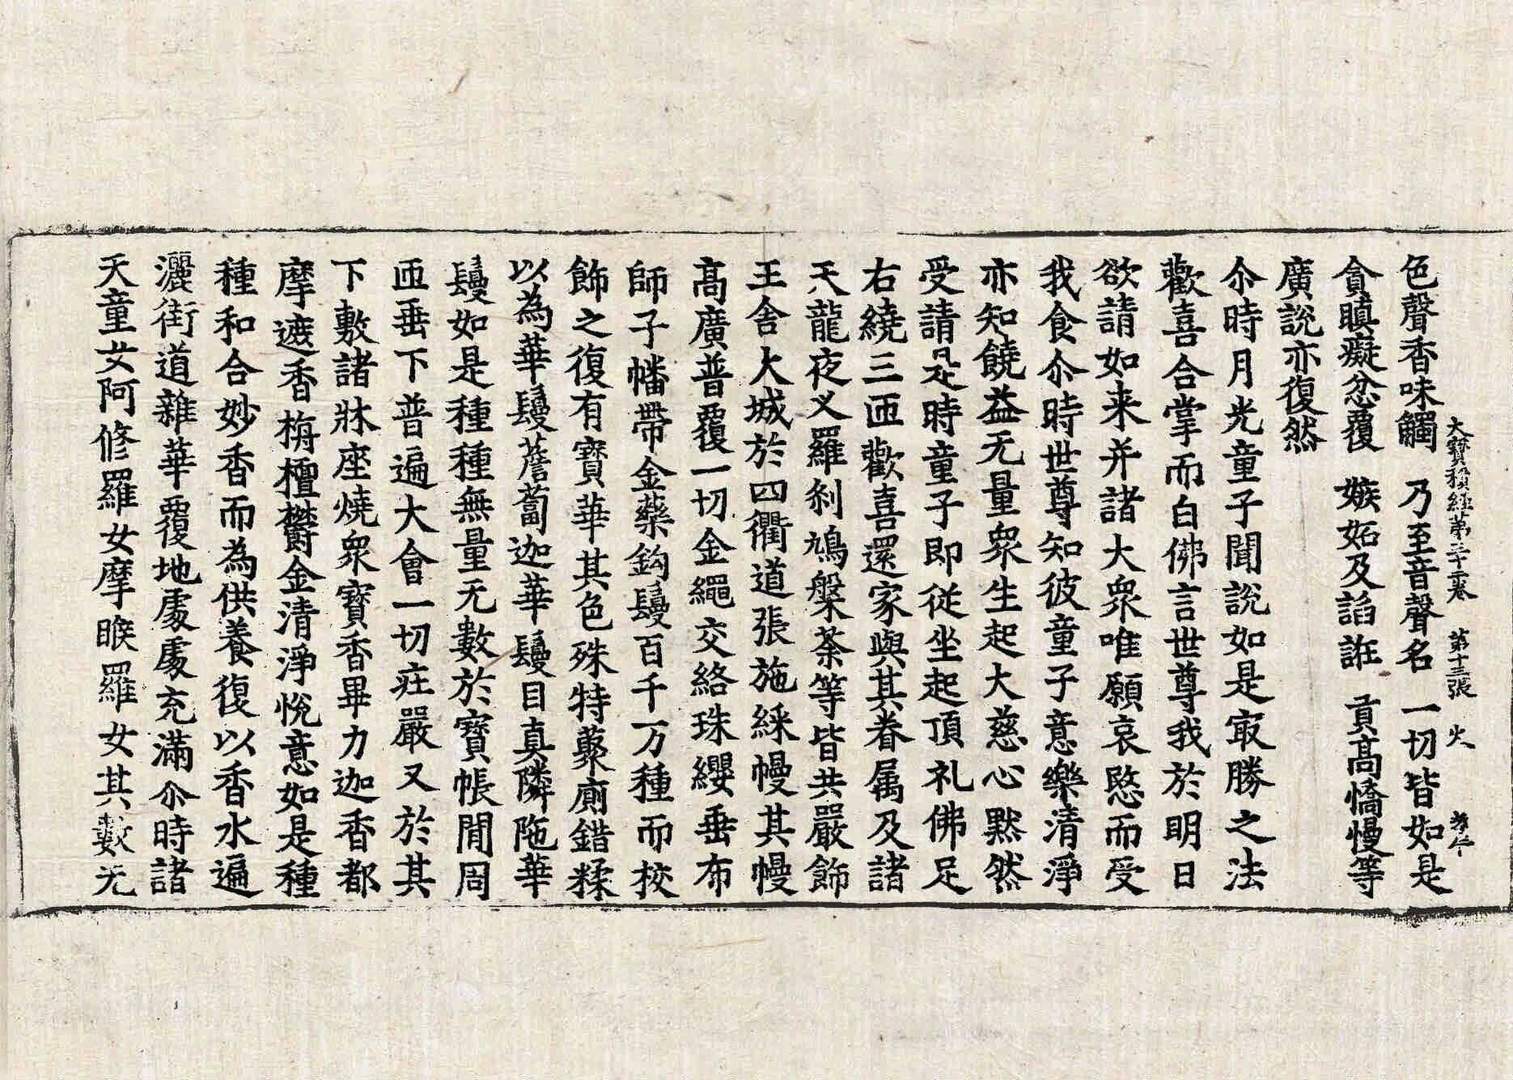 色聲香味觸　乃至音聲名　一切皆如是
大寶積經第三十卷　第十三張　火
貪瞋癡忿覆　嫉妬及諂誑　貢高憍慢等
廣說亦復然
尒時月光童子聞說如是㝡勝之法
歡喜合掌而白佛言世尊我於明日
欲請如来并諸大眾唯願哀愍而受
我食尒時世尊知彼童子意樂清淨
亦知饒益无量眾生起大慈心黙然
受請是時童子即從坐起頂礼佛足
右繞三帀歡喜還家與其眷属及諸
天龍夜叉羅刹鳩槃荼等皆共嚴飾
王舍大城於四衢道張施綵幔其幔
高廣普覆一切金繩交絡珠纓垂布
師子幡帶金藥鈎鬘百千万種而校
飾之復有寶華其色殊特藂廁錯糅
以為華鬘薝蔔迦華鬘目真隣陁華
鬘如是種種無量无數於寶帳間周
帀垂下普遍大會一切庄嚴又於其
下敷諸牀座燒眾寶香畢力迦香都
摩遮香栴檀欝金清淨悅意如是種
種和合妙香而為供養復以香水遍
灑街道雜華覆地處處充滿尒時諸
天童女阿修羅女摩睺羅女其數无